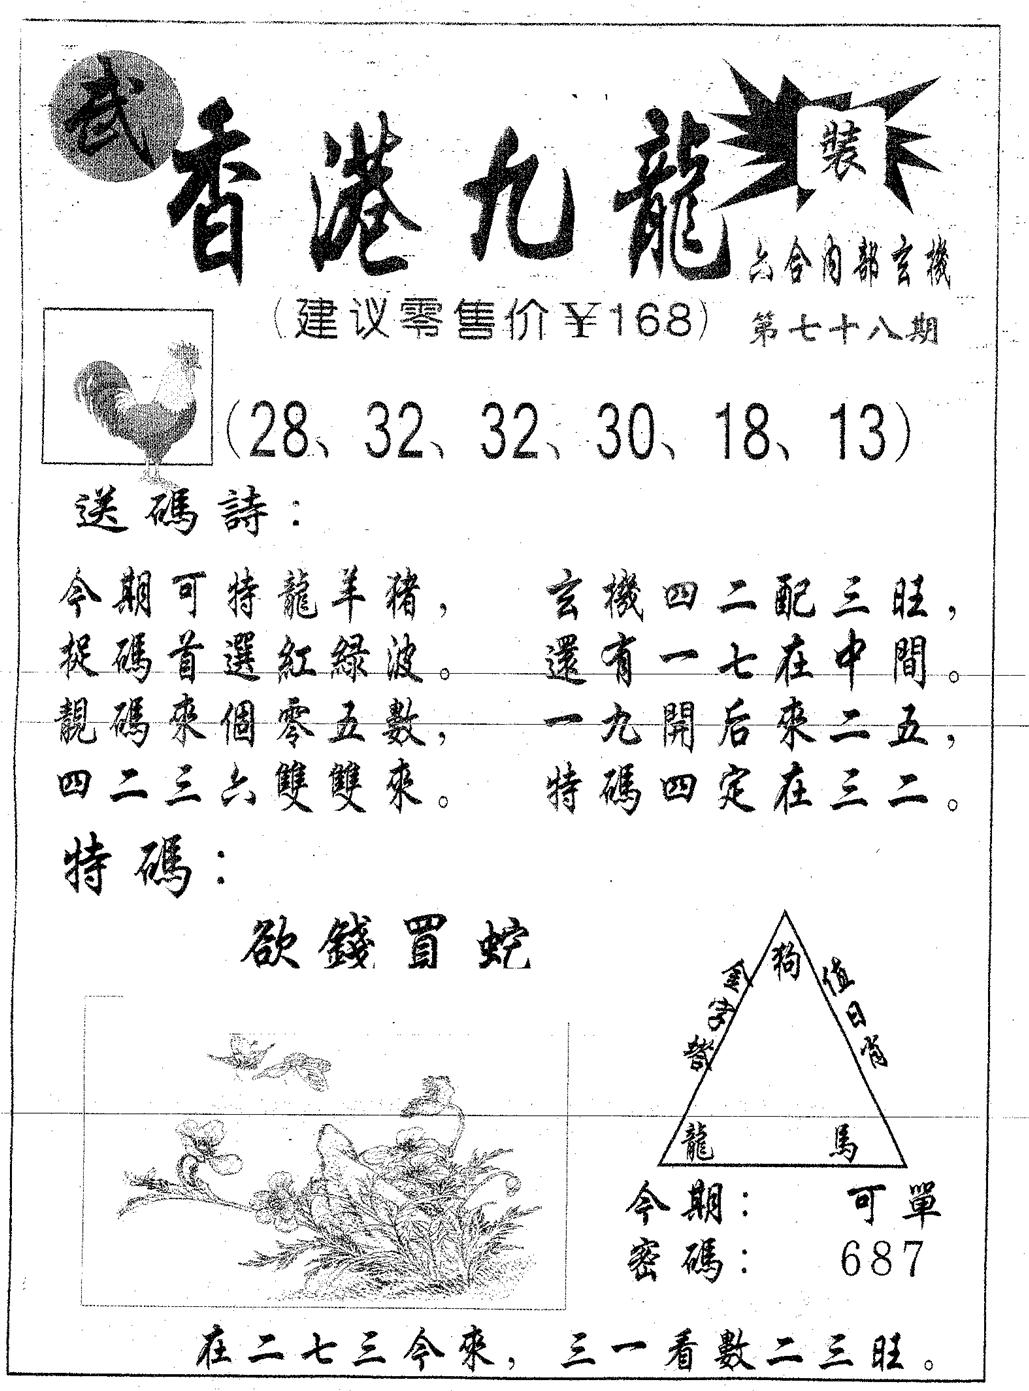 武
香港九龍
裝
六合内部玄機
(建议零售价¥168)
第七十八期
(28、32、32、30、18、13)
送碼詩：
今期可特龍羊豬，
捉碼首選紅綠波。
靚碼來個零五數，
四二三六雙雙來。
玄機四二配三旺，
還有一七在中間。
一九開后來二五，
特碼四定在三二。
特碼：
欲錢買蛇
金字塔
狗
值日肖
龍
馬
今期： 可單
密碼： 687
在二七三今來，三一看數二三旺。